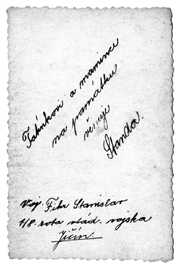 Tatínkovi a mamince
na památku
věnuje
Standa.
Voj. Fikr Stanislav
4/8. rota vlád. vojska
Jičín.